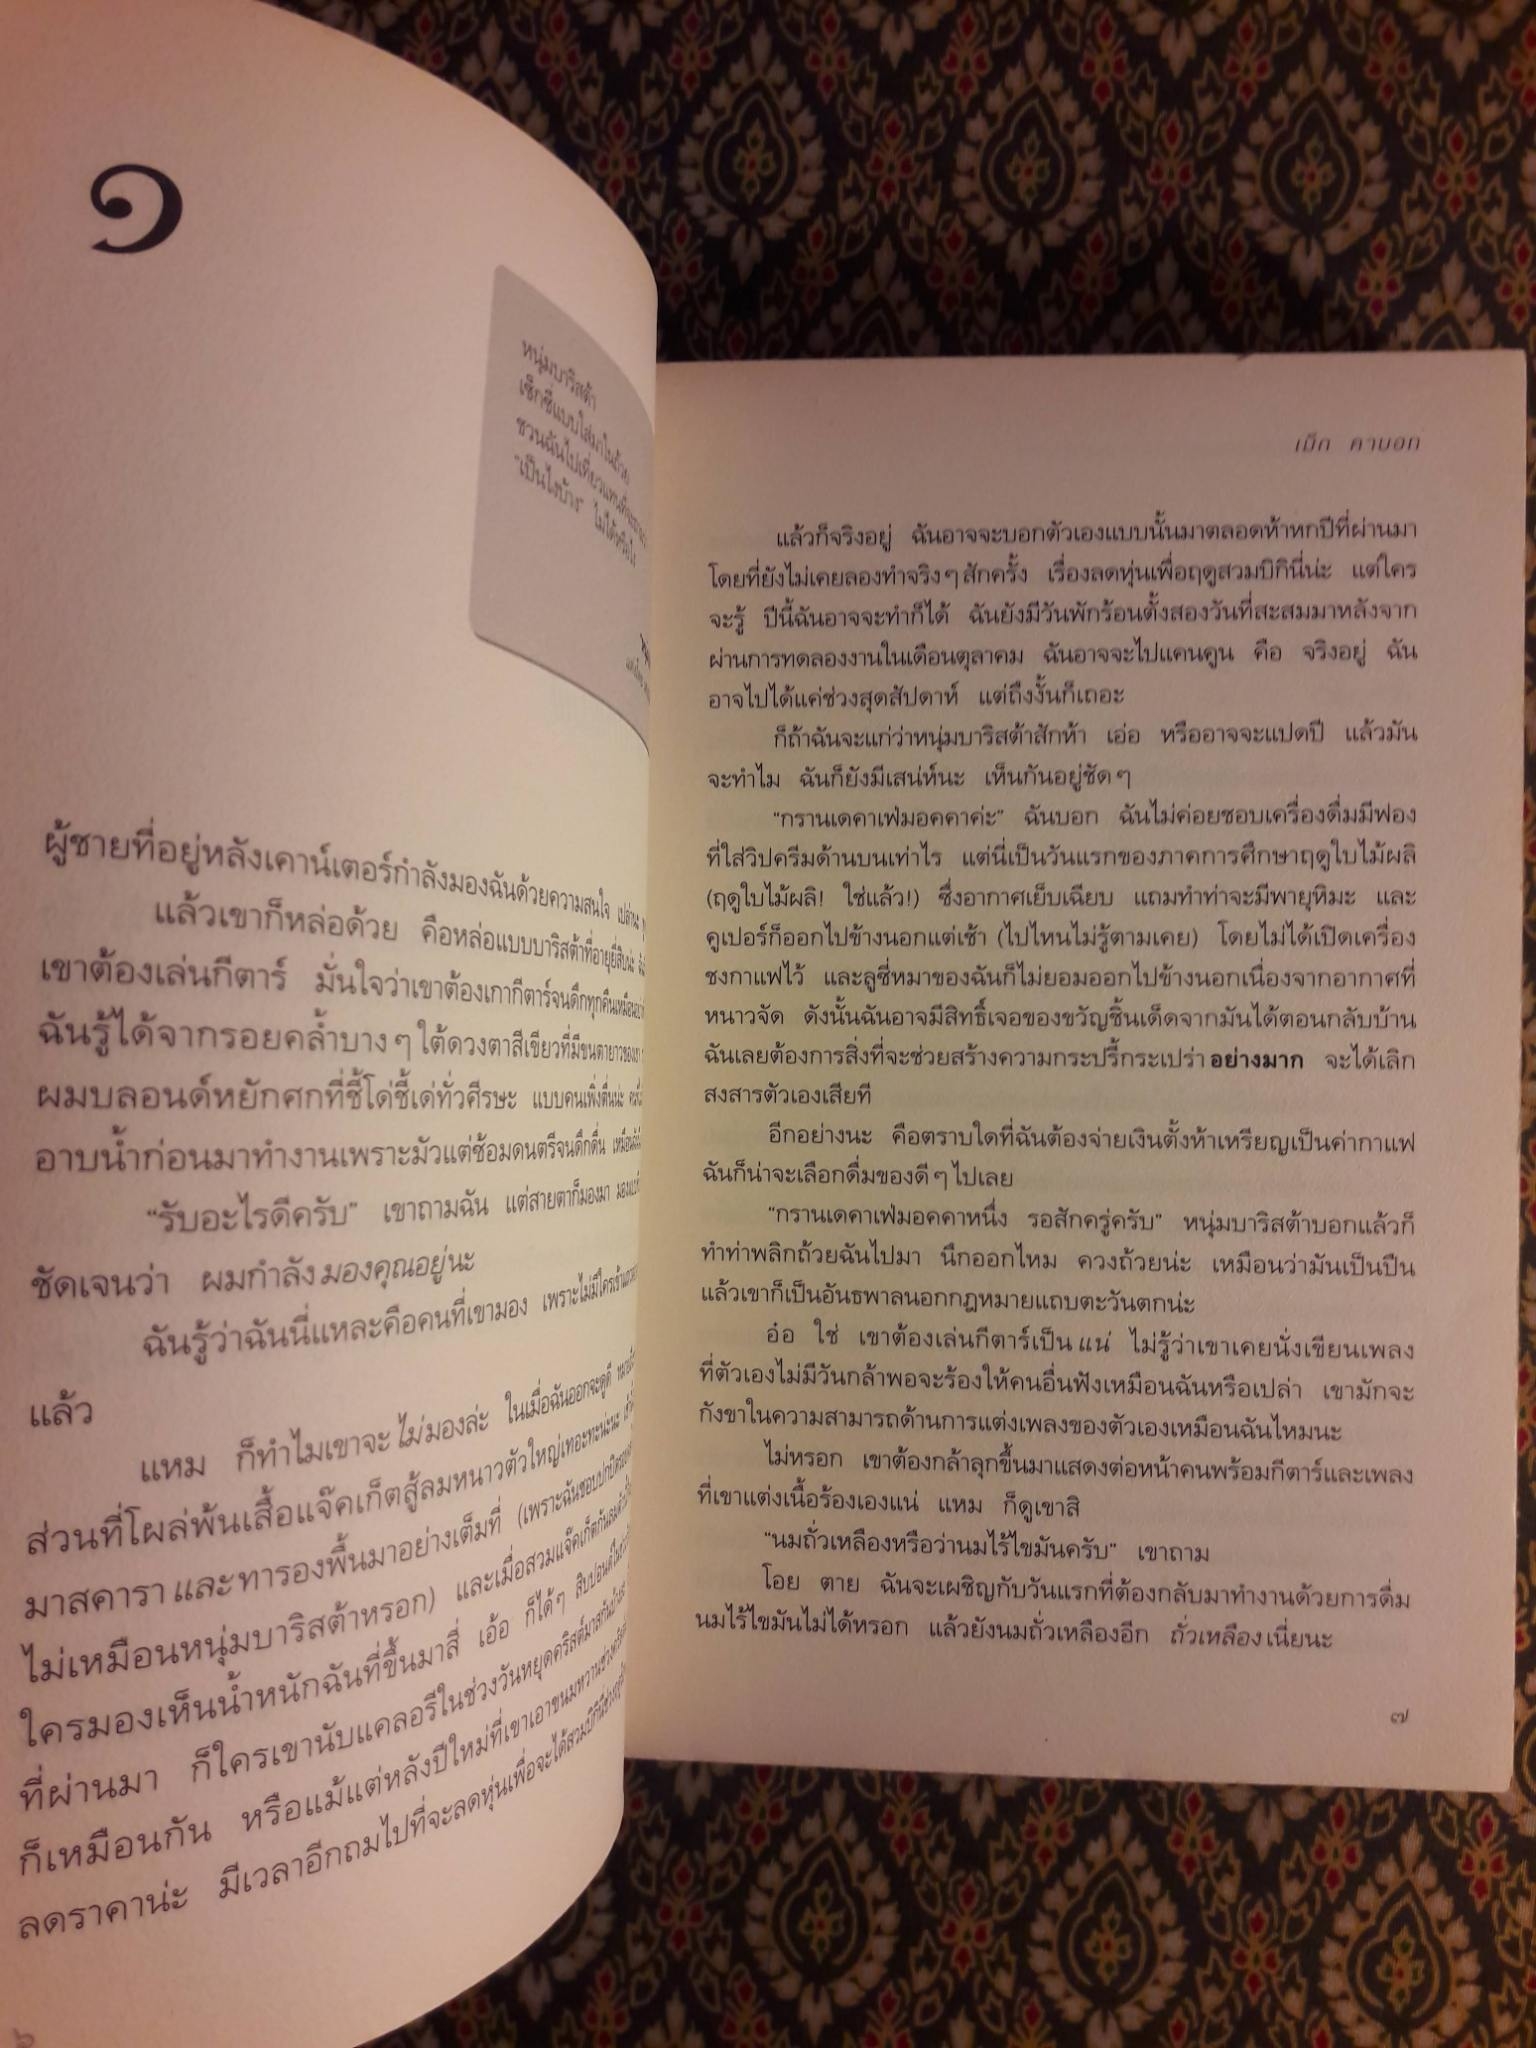 ๑
หนุ่มบาริสต้า
เซ็กซี่แบบใส่มาในถ้วย
ชวนฉันไปเที่ยวแทนที่จะถาม
"เป็นไงบ้าง" ไม่ได้หรือไง
ผู้ชายที่อยู่หลังเคาน์เตอร์กำลังมองฉันด้วยความสนใจ เปล่านะ
แล้วเขาก็หล่อด้วย คือหล่อแบบบาริสต้าที่อายุยี่สิบน่ะ
เขาต้องเล่นกีตาร์ มั่นใจว่าเขาต้องเกากีตาร์จนดึกทุกคืนเหมือน
ฉันรู้ได้จากรอยคล้ำบาง ๆ ใต้ดวงตาสีเขียวที่มีขนตายาวของเขา
ผมบลอนด์หยักศกที่ชี้โด่ชี้เด่ทั่วศีรษะ แบบคนเพิ่งตื่นน่ะ
อาบน้ำก่อนมาทำงานเพราะมัวแต่ซ้อมดนตรีจนดึกดื่น
"รับอะไรดีครับ" เขาถามฉัน แต่สายตาก็มองมา
ชัดเจนว่า ผมกำลังมองคุณอยู่นะ
ฉันรู้ว่าฉันนี่แหละคือคนที่เขามอง เพราะไม่มีใคร
แล้ว
แหม ก็ทำไมเขาจะไม่มองล่ะ ในเมื่อฉันออกจะดูดี
ส่วนที่โผล่พ้นเสื้อแจ๊คเก็ตสู้ลมหนาวตัวใหญ่เทอะทะน่ะนะ
มาสคาราและทารองพื้นมาอย่างเต็มที่ (เพราะฉันชอบปกปิด
ไม่เหมือนหนุ่มบาริสต้าหรอก) และเมื่อสวมแจ๊คเก็ตกันลม
ใครมองเห็นน้ำหนักฉันที่ขึ้นมาสี่ เอ้อ ก็ได้ๆ สิบปอนด์
ที่ผ่านมา ก็ใครเขานับแคลอรีในช่วงวันหยุดคริสต์มาสกัน
ก็เหมือนกัน หรือแม้แต่หลังปีใหม่ที่เขาเอาขนมหวาน
ลดราคาน่ะ มีเวลาอีกถมไปที่จะลดหุ่นเพื่อจะได้สวมบิกินี่
๖
เม็ก คาบอท
แล้วก็จริงอยู่ ฉันอาจจะบอกตัวเองแบบนั้นมาตลอดห้าหกปีที่ผ่านมา
โดยที่ยังไม่เคยลองทำจริง ๆ สักครั้ง เรื่องลดหุ่นเพื่อฤดูสวมบิกินี่น่ะ แต่ใคร
จะรู้ ปีนี้ฉันอาจจะทำก็ได้ ฉันยังมีวันพักร้อนตั้งสองวันที่สะสมมาหลังจาก
ผ่านการทดลองงานในเดือนตุลาคม ฉันอาจจะไปแคนคูน คือ จริงอยู่ ฉัน
อาจไปได้แค่ช่วงสุดสัปดาห์ แต่ถึงงั้นก็เถอะ
ก็ถ้าฉันจะแก่ว่าหนุ่มบาริสต้าสักห้า เอ่อ หรืออาจจะแปดปี แล้วมัน
จะทำไม ฉันก็ยังมีเสน่ห์นะ เห็นกันอยู่ชัด ๆ
"กรานเดคาเฟ่มอคคาค่ะ" ฉันบอก ฉันไม่ค่อยชอบเครื่องดื่มมีฟอง
ที่ใส่วิปครีมด้านบนเท่าไร แต่นี่เป็นวันแรกของภาคการศึกษาฤดูใบไม้ผลิ
(ฤดูใบไม้ผลิ! ใช่แล้ว!) ซึ่งอากาศเย็บเฉียบ แถมทำท่าจะมีพายุหิมะ และ
คูเปอร์ก็ออกไปข้างนอกแต่เช้า (ไปไหนไม่รู้ตามเคย) โดยไม่ได้เปิดเครื่อง
ชงกาแฟไว้ และลูซี่หมาของฉันก็ไม่ยอมออกไปข้างนอกเนื่องจากอากาศที่
หนาวจัด ดังนั้นฉันอาจมีสิทธิ์เจอของขวัญชิ้นเด็ดจากมันได้ตอนกลับบ้าน
ฉันเลยต้องการสิ่งที่จะช่วยสร้างความกระปรี้กระเปร่าอย่างมาก จะได้เลิก
สงสารตัวเองเสียที
อีกอย่างนะ คือตราบใดที่ฉันต้องจ่ายเงินตั้งห้าเหรียญเป็นค่ากาแฟ
ฉันก็น่าจะเลือกดื่มของดี ๆ ไปเลย
"กรานเดคาเฟ่มอคคาหนึ่ง รอสักครู่ครับ" หนุ่มบาริสต้าบอกแล้วก็
ทำท่าพลิกถ้วยฉันไปมา นึกออกไหม ควงถ้วยน่ะ เหมือนว่ามันเป็นปืน
แล้วเขาก็เป็นอันธพาลนอกกฎหมายแถบตะวันตกน่ะ
อ๋อ ใช่ เขาต้องเล่นกีตาร์เป็นแน่ ไม่รู้ว่าเขาเคยนั่งเขียนเพลง
ที่ตัวเองไม่มีวันกล้าพอจะร้องให้คนอื่นฟังเหมือนฉันหรือเปล่า เขามักจะ
กังขาในความสามารถด้านการแต่งเพลงของตัวเองเหมือนฉันไหมนะ
ไม่หรอก เขาต้องกล้าลุกขึ้นมาแสดงต่อหน้าคนพร้อมกีตาร์และเพลง
ที่เขาแต่งเนื้อร้องเองแน่ แหม ก็ดูเขาสิ
"นมถั่วเหลืองหรือว่านมไร้ไขมันครับ" เขาถาม
โอย ตาย ฉันจะเผชิญกับวันแรกที่ต้องกลับมาทำงานด้วยการดื่ม
นมไร้ไขมันไม่ได้หรอก แล้วยังนมถั่วเหลืองอีก ถั่วเหลืองเนี่ยนะ
๗